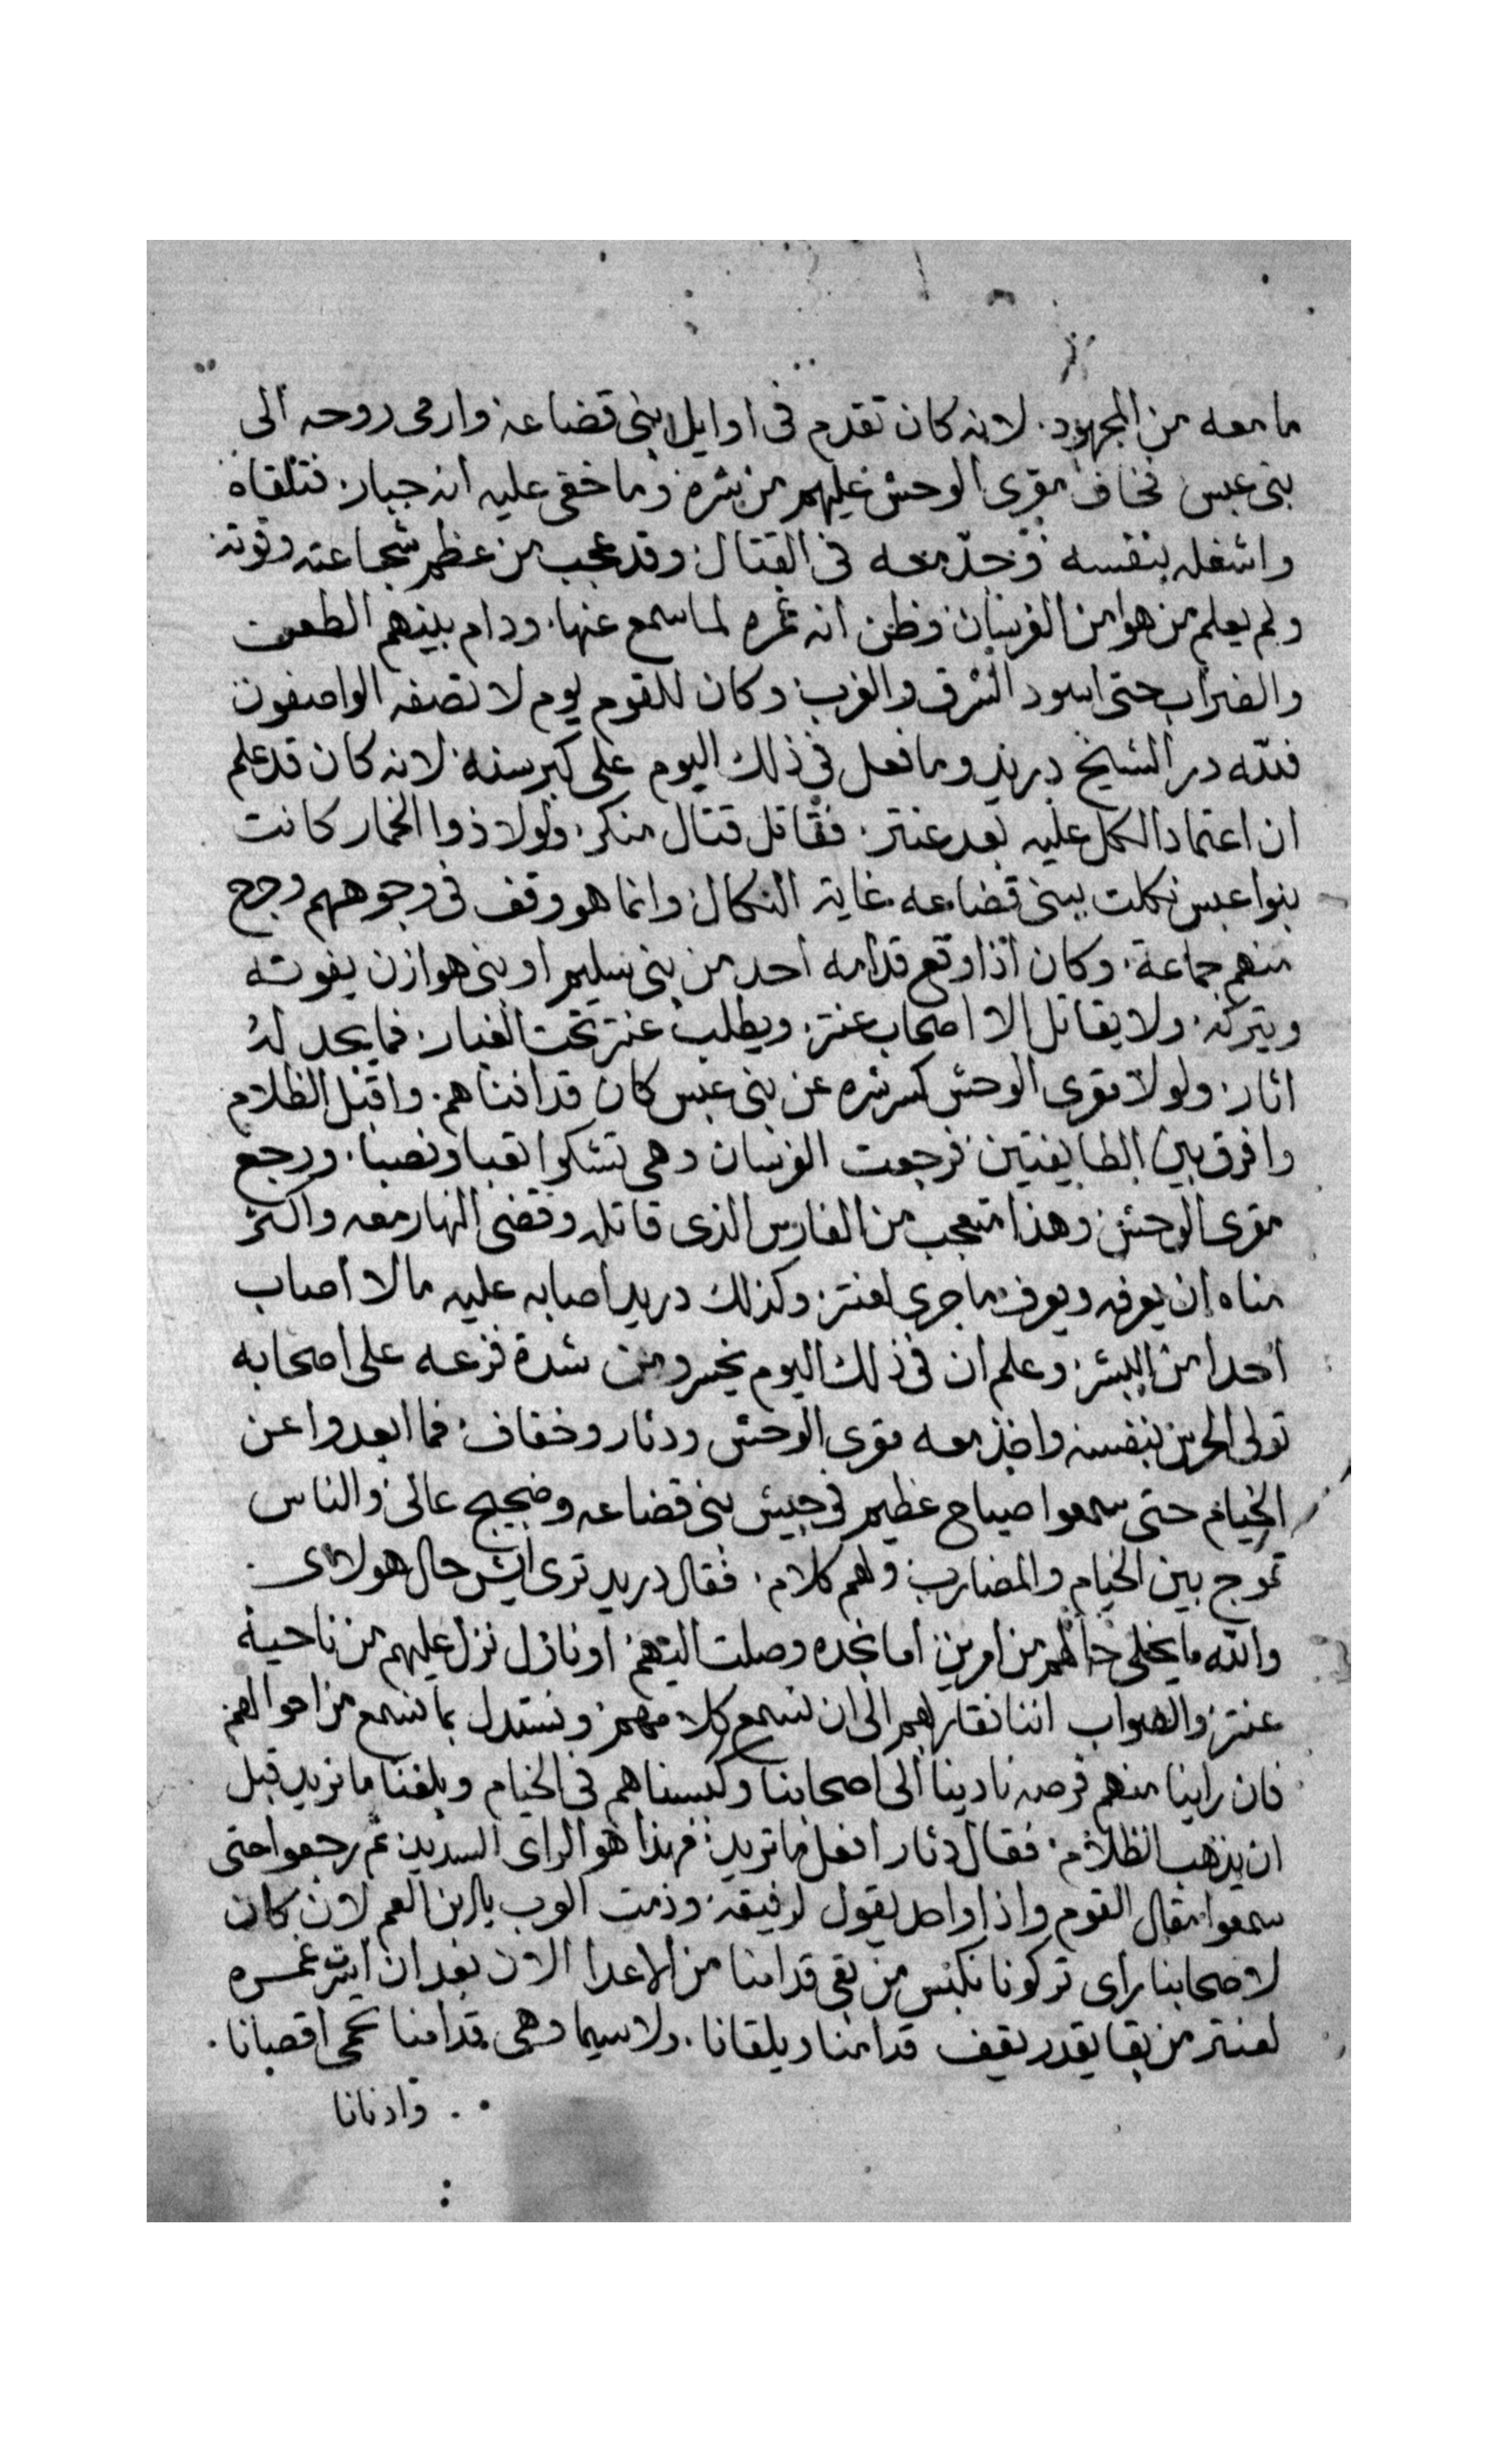 ما معه من المجهود. لانه كان تقدم فى اوايل بنى قضاعه وارمى روحه الى
بنى عبس فخاف مقرى الوحش عليهم من شره وما خفى عليه انه جبار. فتلقاه
واشغله بنفسه وجدّ معه فى القتال وقد عجب من عظم شجاعته وقوته
ولم يعلم من هوا من الفرسان وظن انه غمره لما سمع عنها. ودام بينهم الطعن
والضراب حتى اسود الشرق والغرب وكان للقوم يوم لا تصفه الواصفون
فلله در الشيخ دريد وما فعل فى ذلك اليوم على كبر سنه لانه كان قد علم
ان اعتماد الكل عليه بعد عنتر. فقاتل قتال منكر. ولولا ذوا الخمار كانت
بنوا عبس نكلت ببنى قضاعه غاية النكال وانما هو وقف فى وجوههم وجرح
منهم جماعة. وكان اذا وقع قدامه احد من بنى سليم او بنى هوازن يفوته
ويتركه. ولا يقاتل الا اصحاب عنتر. ويطلب عنتر تحت الغبار. فما يجد له
اثار. ولولا مقرى الوحش كسر شره عن بنى عبس كان قد افناهم. واقبل الظلام
وافرق بين الطايفتين فرجعت الفرسان وهى تشكوا تعبا ونصبا. ورجع
مقرى الوحش وهذا متعجب من الفارس الذى قاتله وقضى النهار معه واكثر
مناه ان يعرفه ويعرف ما جرى لعنتر. وكذلك دريد اصابه عليه ما لا اصاب
احدا من البشر. وعلم ان فى ذلك اليوم يخسر ومن شدة فزعه على اصحابه
تولى الحرس بنفسه واخذ معه مقرى الوحش ودثار وخفاف. فما ابعدوا عن
الخيام حتى سمعوا صياح عظيم فى جيش بنى قضاعه وضجيج عالى والناس
تموج بين الخيام والمضارب ولهم كلام. فقال دريد ترى ايش حال هولاى
والله ما يخلى حالهم من امرين اما نجده وصلت اليهم. او نازل نزل عليهم من ناحية
عنتر. والصواب اننا نقاربهم الى ان نسمع كلامهم. ونستدل بما نسمع من احوالهم
فان راينا منهم فرصه نادينا الى اصحابنا وكبسناهم فى الخيام وبلغنا ما نريد قبل
ان يذهب الظلام. فقال دثار افعل ما تريد. فهذا هو الراى السديد. ثم رجعوا حتى
سمعوا مقال القوم واذا واحد يقول لرفيقه. وذمت العرب يا ابن العم لان كان
لاصحابنا راى تركونا نكبس من بقى قدامنا من الاعدا الان بعد ان ايسرت غمره
لعنتر من بقا يقدر يقف قدامنا ويلقانا. ولا سيما وهى قدامنا تحمى اقصانا.
وادنانا